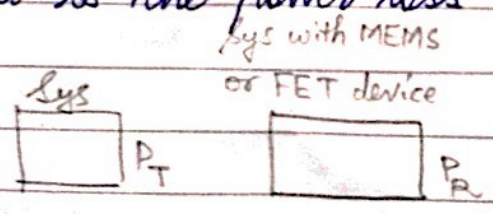 Sys with MEMS
or FET device
Sys
P_T
P_R